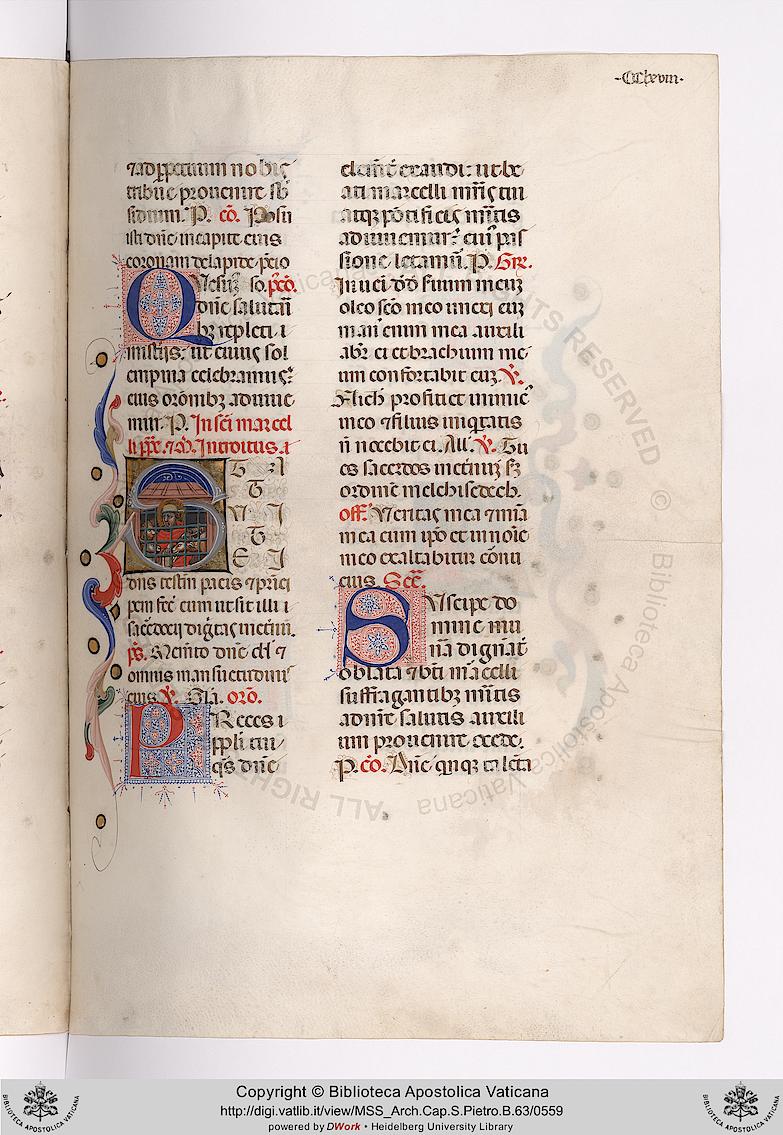 ·CClxviii·
⁊ad ꝑpetuum nobis
tribue prouenire sb̄
sidium. P. c̄o. Posu
isti dn̄e in capite eius
coronam de lapide p̄cio
Q Vesum̄. so. p̄co.
dn̄e salutari
bꝫ repleti i
misteriis: ut cuius sol
empnia celebramus:
eius orōnibꝫ adiuue
mur. P. In sc̄i marcel
li pp̄e. ⁊ m̄. Introitus. a
S T A
T
V I
T
E I
dn̄s testm̄ pacis ⁊ pr̄nci
pem fec̄ eum ut sit illi i
sac̄docii dignitas in et̄nū.
p̄s. Memento dn̄e dd̄ ⁊
omnis mansuetudinis
eius ℣. Gl̄a. orō.
P Reces i
ppl̄i tui
q̄s dn̄e
clement̄ exaudi: ut be
ati marcelli mr̄is tui
atqꝫ pontificis meritis
adiuuemur: cui' pas
sione letamur. P. Gr̄.
Inueni dd̄ seruum meuꝫ
oleo sc̄o meo unxi euꝫ
man' enim mea auxili
abr̄ ei et brachium me
um confortabit euꝫ. ℣.
Nichil proficiet inimic'
in eo ⁊ filius iniqtatis
n̄ nocebit ei. All'. ℣. Tu
es sacerdos in et̄nuꝫ sꝫ
ordinē melchisedech.
off. Veritas mea ⁊ mīa
mea cum ip̄o et in noīe
meo exaltabitur cornu
eius. Sec̄.
S Vscipe do
mine mu
nā dignat̄
oblata ⁊ bt̄i marcelli
suffragantibꝫ meritis
ad nr̄e salutis auxili
um prouenire ꝯcede.
P. c̄o. Dn̄e quinqꝫ talēta
ALL RIGHTS RESERVED © Biblioteca Apostolica Vaticana
Copyright © Biblioteca Apostolica Vaticana
http://digi.vatlib.it/view/MSS_Arch.Cap.S.Pietro.B.63/0559
powered by DWork • Heidelberg University Library
BIBLIOTECA APOSTOLICA VATICANA
BIBLIOTECA APOSTOLICA VATICANA